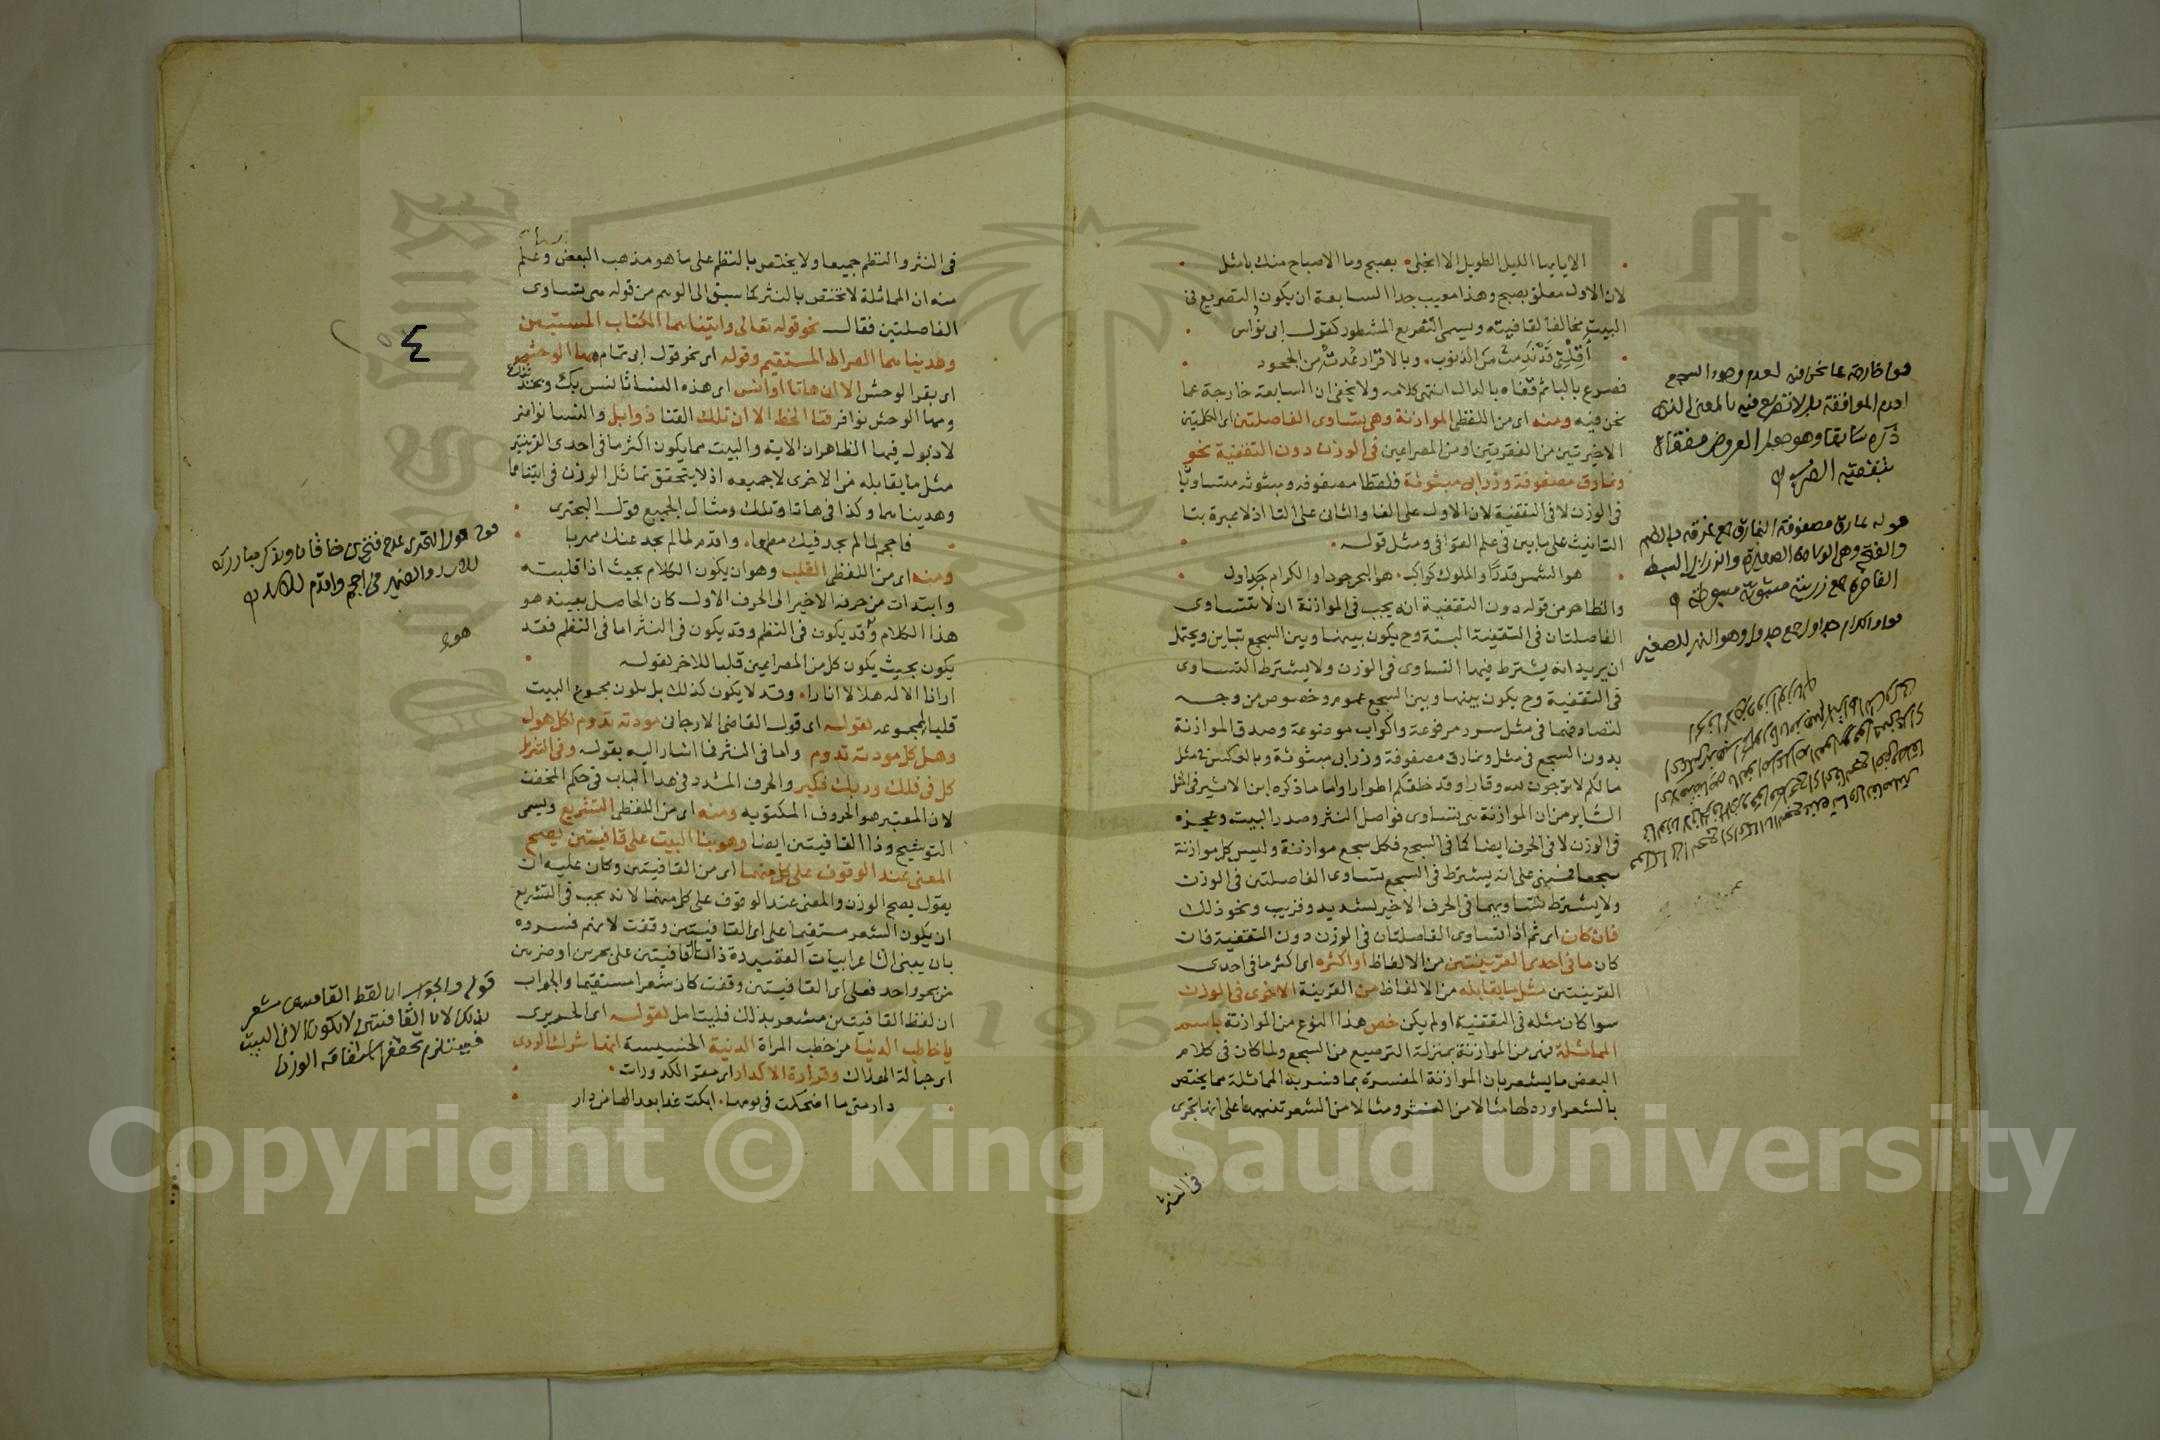 الا ايها الليل الطويل الا انجلى بصبح وما الاصباح منك بامثل
لان الاول معلق بصبح وهذا معيب جدا السابعة ان يكون التصريع فى
البيت مخالفا لقافيته ويسمى التصريع المشطور كقول ابى نواس
أقلنى قد ندمت من الذنوب وبالاقرار عدت من الجحود
فصرع بالباء ثم قفاه بالدال انتهى كلامه ولا يخفى ان السابعة خارجة عما
نحن فيه ومنه اى من اللفظى الموازنة وهى تساوى الفاصلتين اى الكلمتين
الاخيرتين من الفقرتين او من المصراعين فى الوزن دون التقفية نحو
ونمارق مصفوفة وزرابى مبثوثة فلفظا مصفوفة ومبثوثة متساويا
فى الوزن لا فى التقفية لان الاول على الفا والثانى على الثا اذ لا عبرة بتا
التانيث على ما بين فى علم القوافى ومثل قوله
هو الشمس قدرا والملوك كواكب هو البحر جودا والكرام جداول
والظاهر من قوله دون التقفية انه يجب فى الموازنة ان لا تتساوى
الفاصلتان فى التقفية البتة وح يكون بينها وبين السجع تباين ويحتمل
ان يريد انه يشترط فيها التساوى فى الوزن ولا يشترط التساوى
فى التقفية وح يكون بينها وبين السجع عموم وخصوص من وجه
لتصادقهما فى مثل سرر مرفوعة واكواب موضوعة وصدق الموازنة
بدون السجع فى مثل ونمارق مصفوفة وزرابى مبثوثة وبالعكس فى مثل
ما لكم لا ترجون لله وقارا وقد خلقكم اطوارا واما ما ذكره ابن الاثير فى المثل
السائر من ان الموازنة هى تساوى فواصل النثر وصدر البيت وعجزه
فى الوزن لا فى الحرف ايضا كما فى السجع فكل سجع موازنة وليس كل موازنة
سجعا فمبنى على انه يشترط فى السجع تساوى الفاصلتين فى الوزن
ولا يشترط تساويهما فى الحرف الاخير لشديد وقريب ونحو ذلك
فان كان اى ثم اذا تساوى الفاصلتان فى الوزن دون التقفية فان
كان ما فى احدى القرينتين من الالفاظ او اكثره اى اكثر ما فى احدى
القرينتين مثل ما يقابله من الالفاظ من القرينة الاخرى فى الوزن
سوا كان مثله فى التقفية او لم يكن خص هذا النوع من الموازنة باسم
المماثلة فهى من الموازنة بمنزلة الترصيع من السجع ولما كان فى كلام
البعض ما يشعر بان الموازنة المفسرة بما فسر به المماثلة مما يختص
بالشعر اورد لها مثالا من النثر ومثالا من الشعر تنبيها على انها تجرى
فى النثر
قوله خارجة عما نحن فيه لعدم وجود السجع
ذكره سابقا وهو جعل العروض مقفاة
بتقفية الضرب
قوله نمارق مصفوفة النمارق جمع نمرقة بالضم
والفتح وهى الوسادة الصغيرة والزرابى البسط
الفاخرة جمع زربية مبثوثة مبسوطة
قوله والكرام جداول جمع جدول وهو النهر الصغير
فى النثر والنظم جميعا ولا يختص بالنظم على ما هو مذهب البعض وعلم
منه ان المماثلة لا تختص بالنثر كما سبق الى الوهم من قوله هى تساوى
الفاصلتين فقال نحو قوله تعالى واتيناهما الكتاب المستبين
وهديناهما الصراط المستقيم وقوله اى نحو قول ابى تمام مها الوحش
اى بقر الوحش الا ان هاتا اوانس اى هذه النسا تانس بك وتحدثك
ومها الوحش نوافر قنا الخط الا ان تلك القنا ذوابل والنسا نواضر
لا ذبول فيها الظاهر ان الاية والبيت مما يكون اكثر ما فى احدى القرينتين
مثل ما يقابله من الاخرى لا جميعه اذ لا يتحقق تماثل الوزن فى اتيناهما
وهديناهما وكذا فى هاتا وتلك ومثال الجميع قول البحترى
فاحجم لما لم يجد فيك مطمعا واقدم لما لم يجد عنك مهربا
ومنه اى من اللفظى القلب وهو ان يكون الكلام بحيث اذا قلبته
وابتدات من حرفه الاخير الى الحرف الاول كان الحاصل بعينه هو
هذا الكلام وقد يكون فى النظم وقد يكون فى النثر اما فى النظم فقد
يكون بحيث يكون كل من المصراعين قلبا للاخر كقوله
ارانا الاله هلالا انارا وقد لا يكون كذلك بل يكون مجموع البيت
قلبا لمجموعه كقوله اى قول القاضى الارجانى مودته تدوم لكل هول
وهل كل مودته تدوم واما فى النثر فما اشار اليه بقوله وفى التنزيل
كل فى فلك وربك فكبر والحرف المشدد فى هذا الباب فى حكم المخفف
لان المعتبر هو الحروف المكتوبه ومنه اى من اللفظى التشريع ويسمى
التوشيح وذا القافيتين ايضا وهو بنا البيت على قافيتين يصح
المعنى عند الوقوف على كل منهما اى من القافيتين وكان عليه ان
يقول يصح الوزن والمعنى عند الوقوف على كل منهما لانه يجب فى التشريع
ان يكون الشعر مستقيما على اى القافيتين وقفت لانهم فسروه
بان يبنى الشاعر ابيات القصيدة ذات قافيتين على بحرين او ضربين
من بحر واحد فعلى اى القافيتين وقفت كان شعرا مستقيما والجواب
ان لفظ القافيتين مشعر بذلك فليتامل كقوله اى الحريرى
يا خاطب الدنيا من خطب المراة الدنية الخسيسة انها شرك الردى
اى حبالة الهلاك وقرارة الاكدار اى مقر الكدورات
دار متى ما اضحكت فى يومها ابكت غدا بعدا لها من دار
٤
قوله والجواب ان لفظ القافيتين مشعر
بذلك لان القافيتين لا تكون الا فى البيت